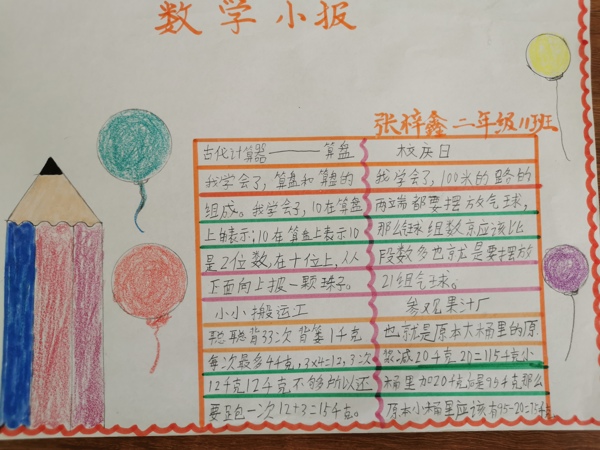 数学小报
张梓鑫 二年级11班
古代计算器——算盘
我学会了，算盘和算盘的
组成。我学会了，10在算盘
上由表示；10在算盘上表示10
是2位数，在十位上，从
下面向上拨一颗珠子。
小小搬运工
聪聪背33次 背第1千克
每次最多4千克，3×4=12，3次
12千克12千克不够所以还
要跑一次12+3=15千克。
校庆日
我学会了，100米的路的
两端都要摆放气球，
那么气球组数京应该比
段数多也就是要摆放
21组气球。
参观果汁厂
也就是原本大桶里的原
浆减20千克 20=115千克小
桶里加20千克 是95千克那么
原本小桶里应该有95-20=75千